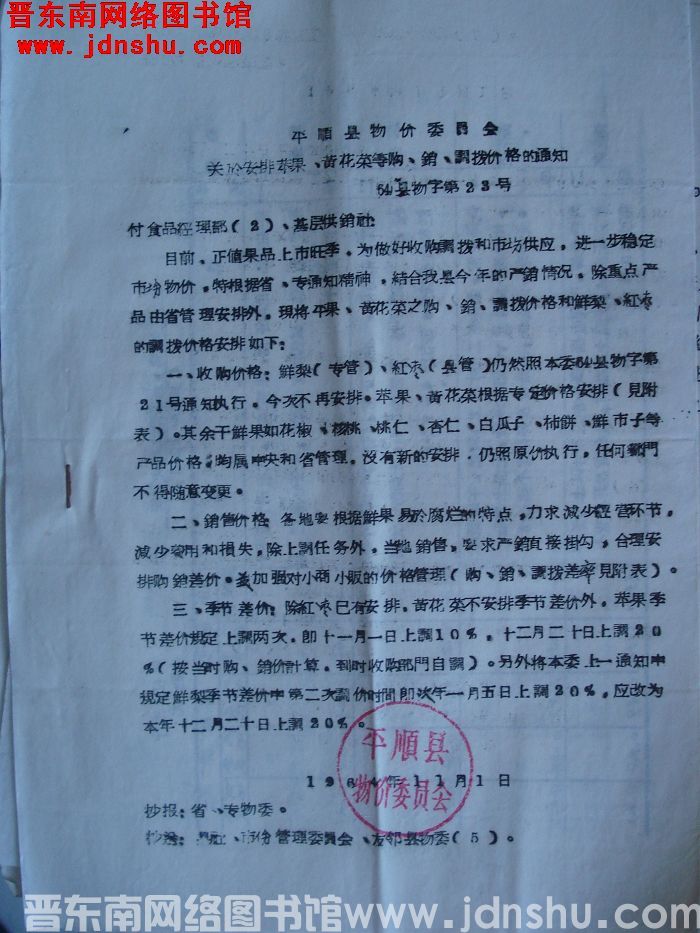 晋东南网络图书馆
www.jdnshu.com
平順县物价委員会
关於安排苹果、黄花菜等购、銷、調拨价格的通知
64县物字第23号
付食品經理部(2)、基层供銷社:
目前、正值果品上市旺季。为做好收购調拨和市场供应，进一步稳定
市场物价。特根据省、专通知精神，結合我县今年的产銷情况。除重点产
品由省管理安排外。現将苹果、黄花菜之购、銷、調拨价格和鮮梨、紅枣
的調拨价格安排如下:
一、收购价格:鮮梨(专管)、紅枣(县管)仍然照本委64县物字第
21号通知执行。今次不再安排。苹果、黄花菜根据专定价格安排(見附
表)。其余干鮮果如花椒、核桃、桃仁、杏仁、白瓜子、柿餅、鮮市子等
产品价格，均属中央和省管理。沒有新的安排．仍照原价执行，任何部門
不得随意变更。
二、銷售价格:各地要根据鮮果易於腐烂的特点，力求減少經营环节，
減少費用和損失，除上調任务外。当地銷售，要求产銷直接掛勾，合理安
排购銷差价。並加强对小商小販的价格管理(购、銷、調拨差率見附表)。
三、季节差价:除紅枣已有安排，黄花菜不安排季节差价外。苹果季
节差价規定上調两次。即十一月一日上調10%，十二月二十日上調20
%(按当时购、銷价計算，到时收购部門自調)。另外将本委上一通知中
規定鮮梨季节差价中第二次調价时間即次年一月五日上調20%，应改为
本年十二月二十日上調20%。
1964年11月1日
平順县
物价委员会
抄报:省、专物委。
抄送: 管理委員会、友邻县物委(5)。
晋东南网络图书馆www.jdnshu.com